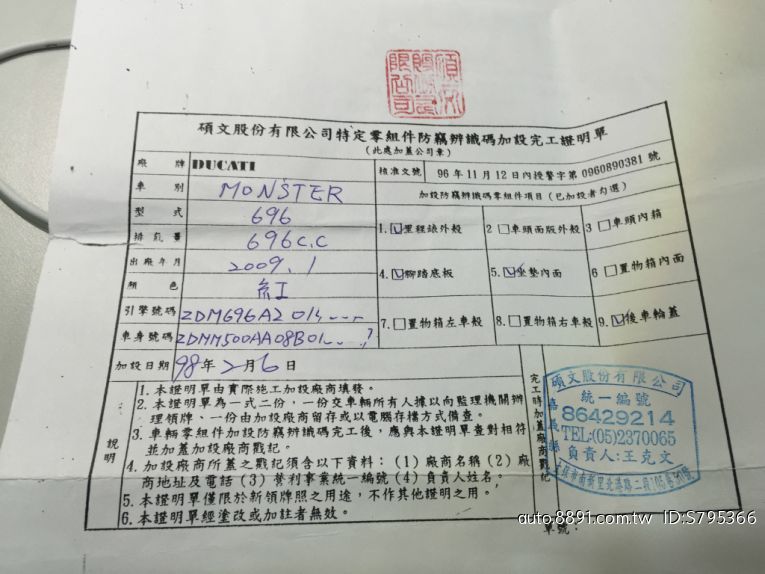 碩文股份有限公司特定零組件防竊辨識碼加設完工證明單
(此處加蓋公司章)
廠牌 DUCATI
核准文號 96年11月12日內授警字第0960890381號
車別 MONSTER
加設防竊辨識碼零組件項目(已加設者勾選)
型式 696
1.☑里程錶外殼 2□車頭面版外殼 3□車頭內箱
排氣量 696c.c
出廠年月 2009.1
4.☑腳踏底板 5.☑坐墊內面 6□置物箱內面
顏色 紅
引擎號碼 ZDM696A2
7.□置物箱左車殼 8.□置物箱右車殼 9.☑後車輪蓋
車身號碼 ZDMM500AA08B01
加設日期 98年2月6日
說明
1.本證明單由實際施工加設廠商填發。
2.本證明單為一式二份,一份交車輛所有人據以向監理機關辦
理領牌、一份由加設廠商留存或以電腦存檔方式備查。
3.車輛零組件加設防竊辨識碼完工後,應與本證明單查對相符
並加蓋加設廠商戳記。
4.加設廠商所蓋之戳記須含以下資料:(1)廠商名稱(2)廠
商地址及電話(3)營利事業統一編號(4)負責人姓名。
5.本證明單僅限於新領牌照之用途,不作其他證明之用。
6.本證明單經塗改或加註者無效。
完工時加蓋廠商戳記
碩文股份有限公司
統一編號
86429214
TEL:(05)2370065
負責人:王克文
嘉義縣
單號:
auto.8891.com.tw ID:S795366